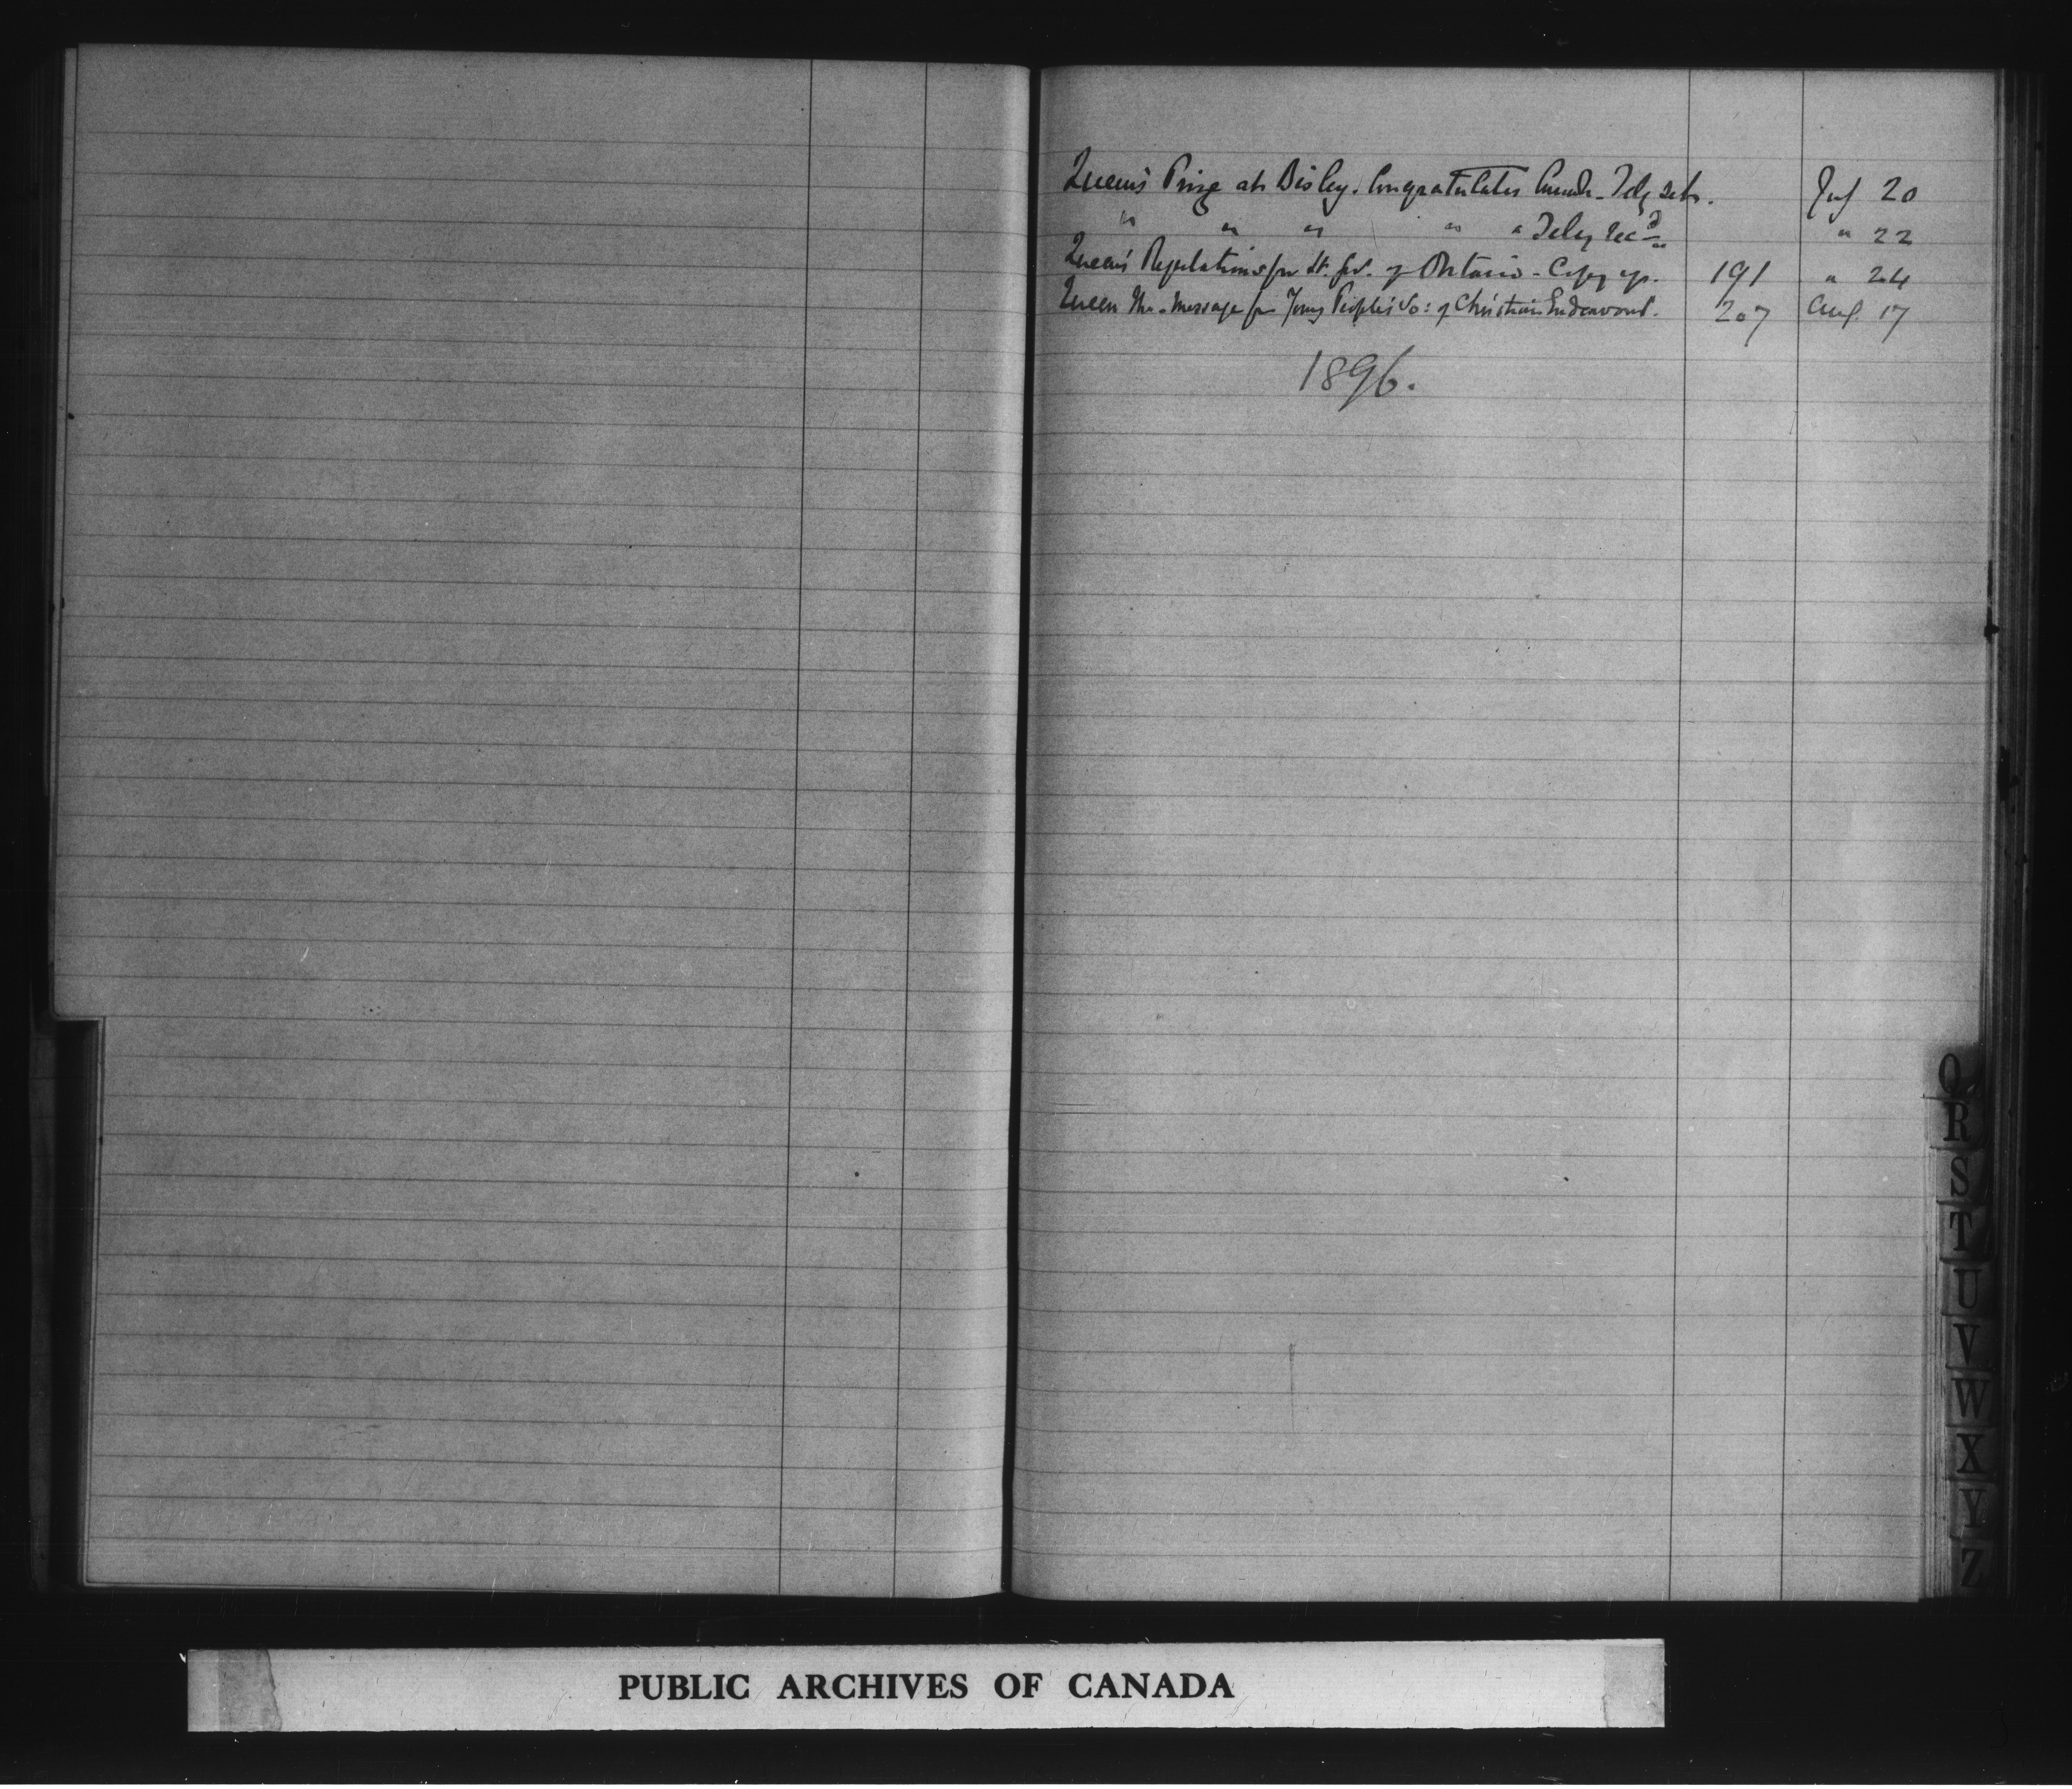 Queen's Prize at Bisley. Congratulates Canada - Teleg sent. July 20
" " " " " Teleg rec'd " 22
Queen's Regulations for Lt. Gov. of Ontario - Copy of. 191 " 24
Queen The - Message fm Young People's So: of Christian Endeavour. 207 Aug. 17
1896.
Q
R
S
T
U
V
W
X
Y
Z
PUBLIC ARCHIVES OF CANADA